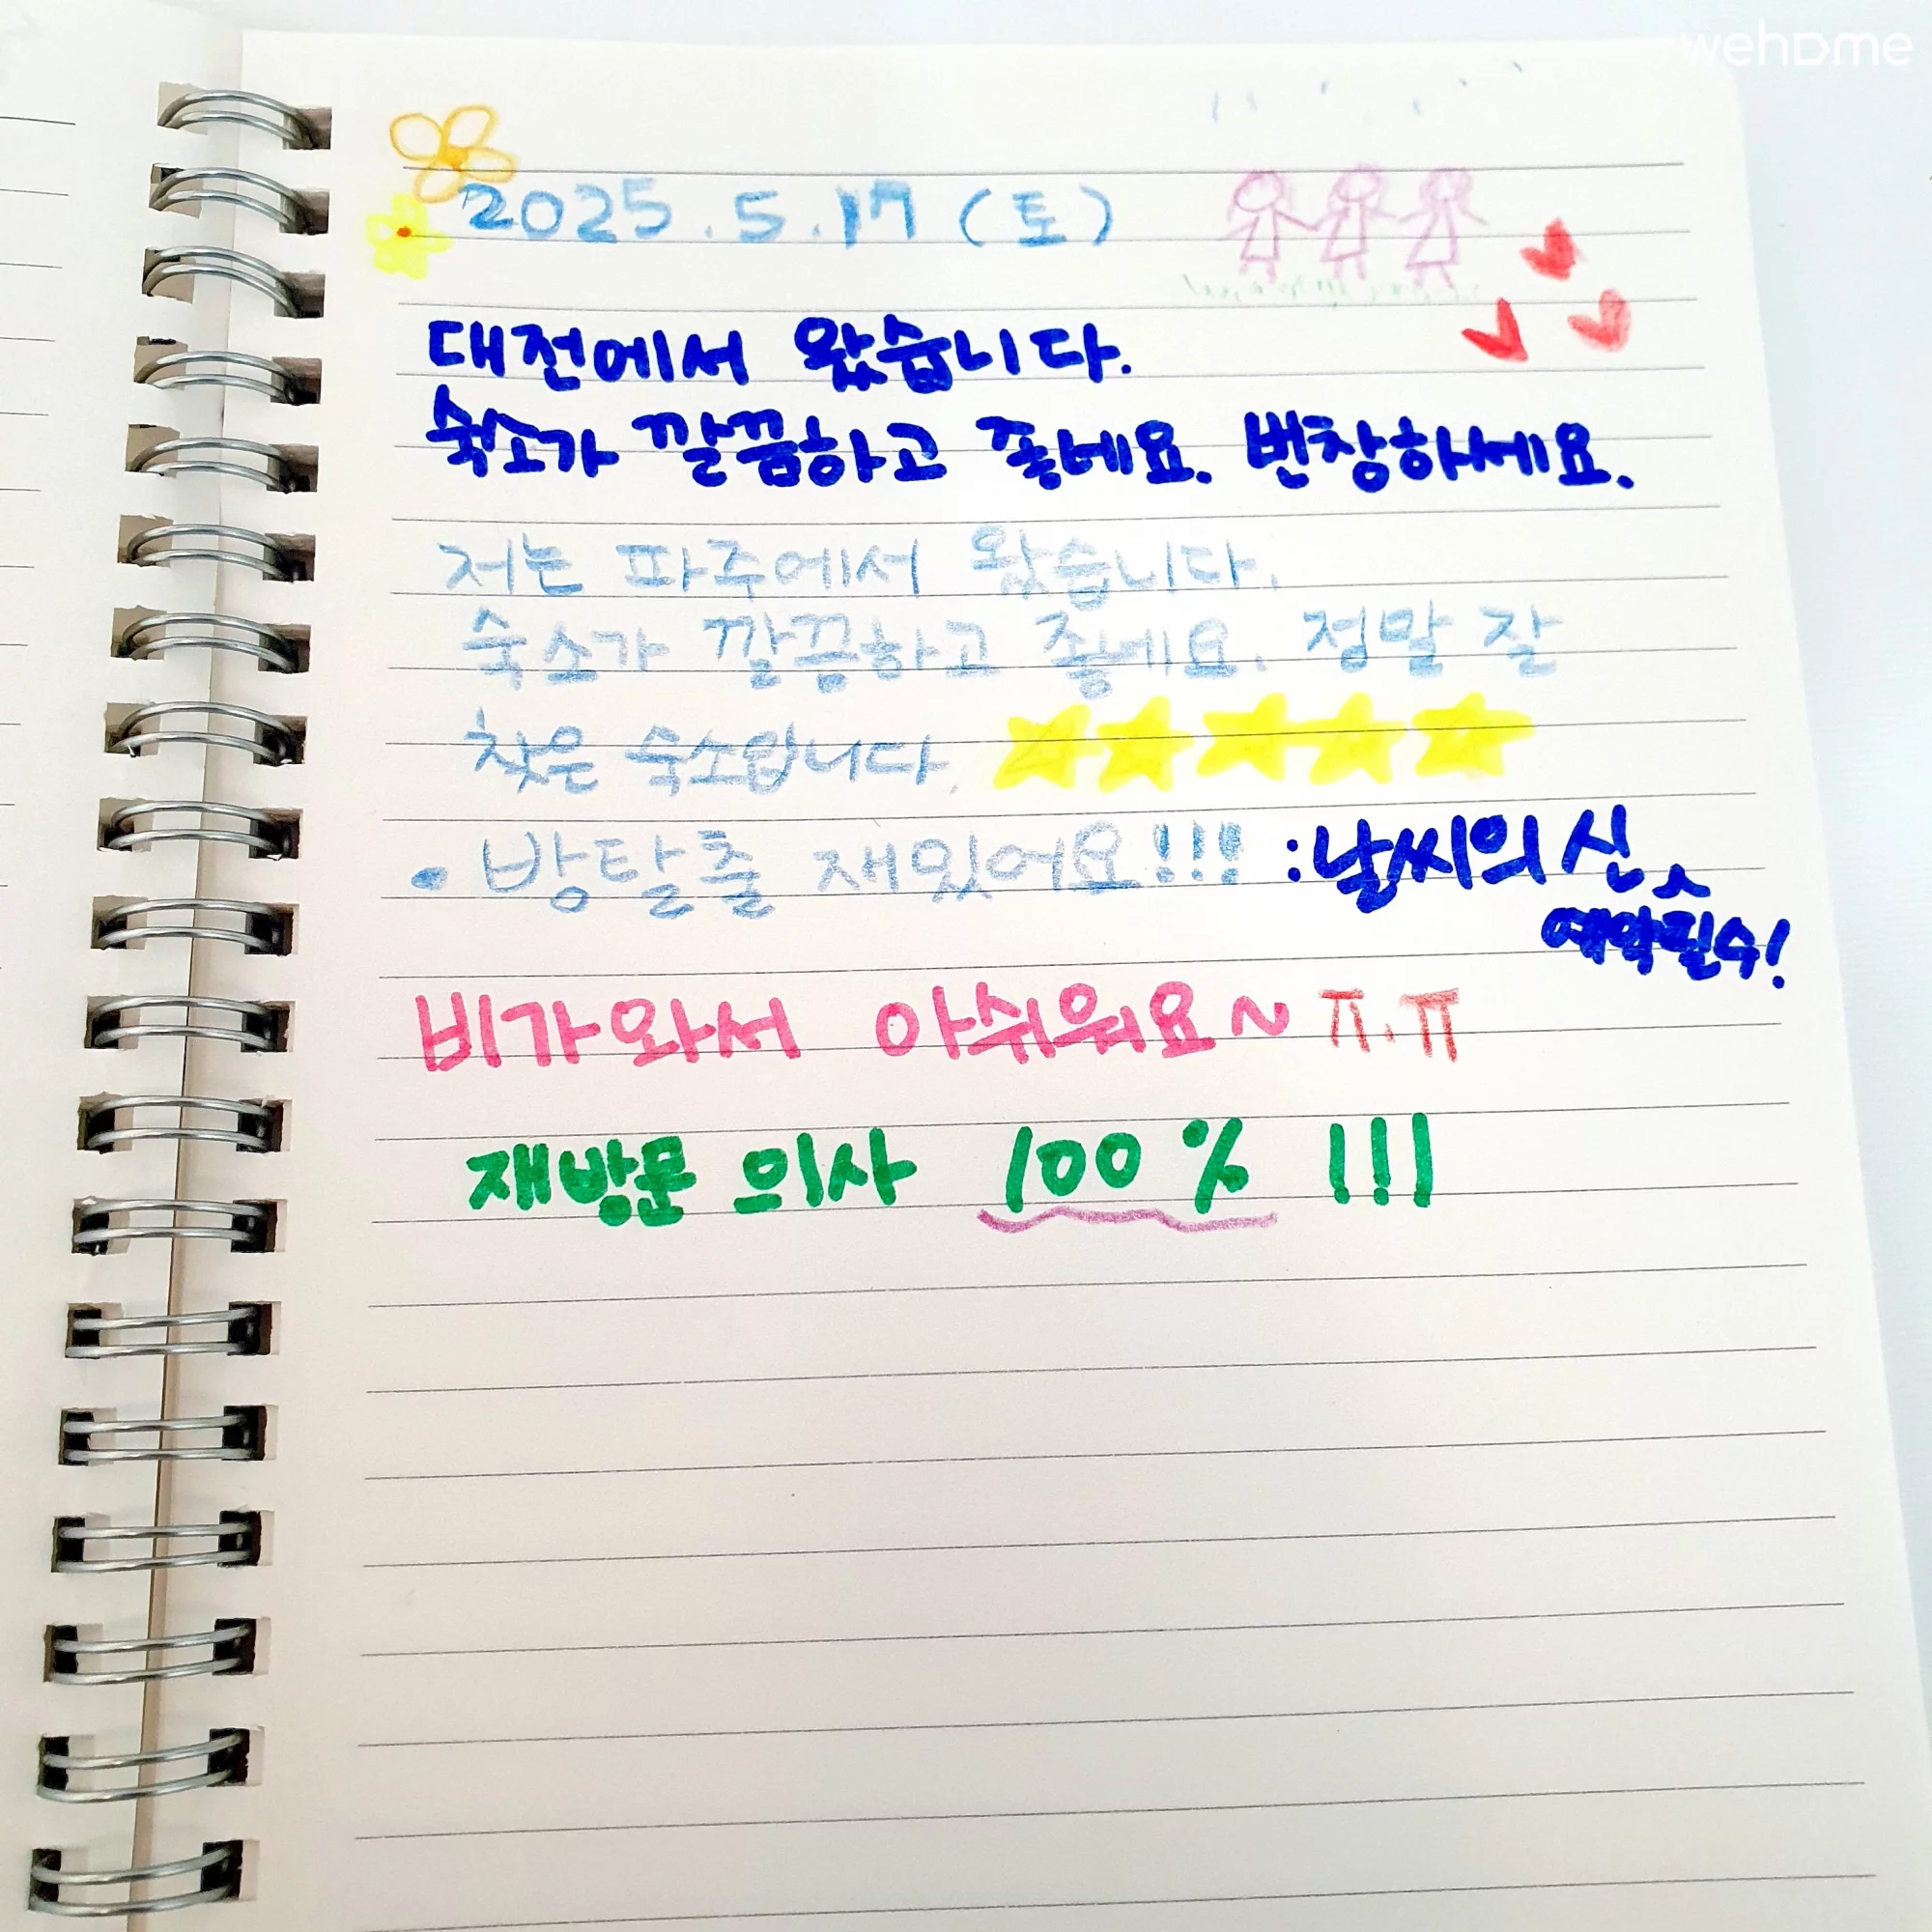 wehome
2025.5.17 (토)
대전에서 왔습니다.
숙소가 깔끔하고 좋네요. 번창하세요.
저는 파주에서 왔습니다.
숙소가 깔끔하고 좋네요. 정말 잘
찾은 숙소입니다.
• 방탈출 재밌어요!!! :날씨의 신
예약필수!
비가와서 아쉬워요~ ㅠ.ㅠ
재방문 의사 100% !!!